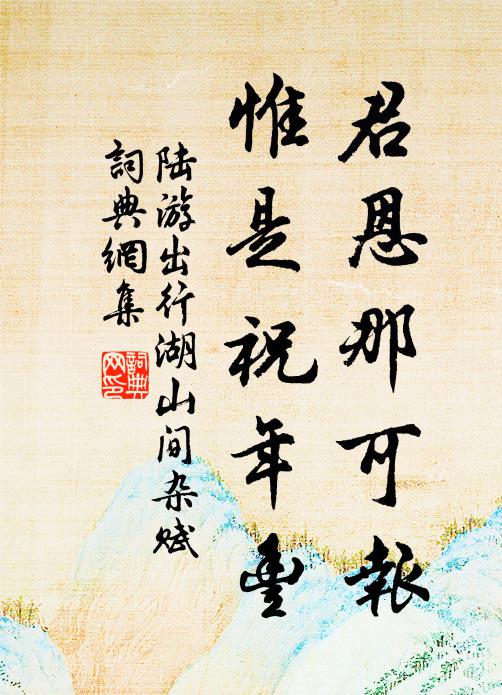 君恩那可報
惟是祝年豐
陆游出行湖山间杂赋
詞典網集
詞典網印